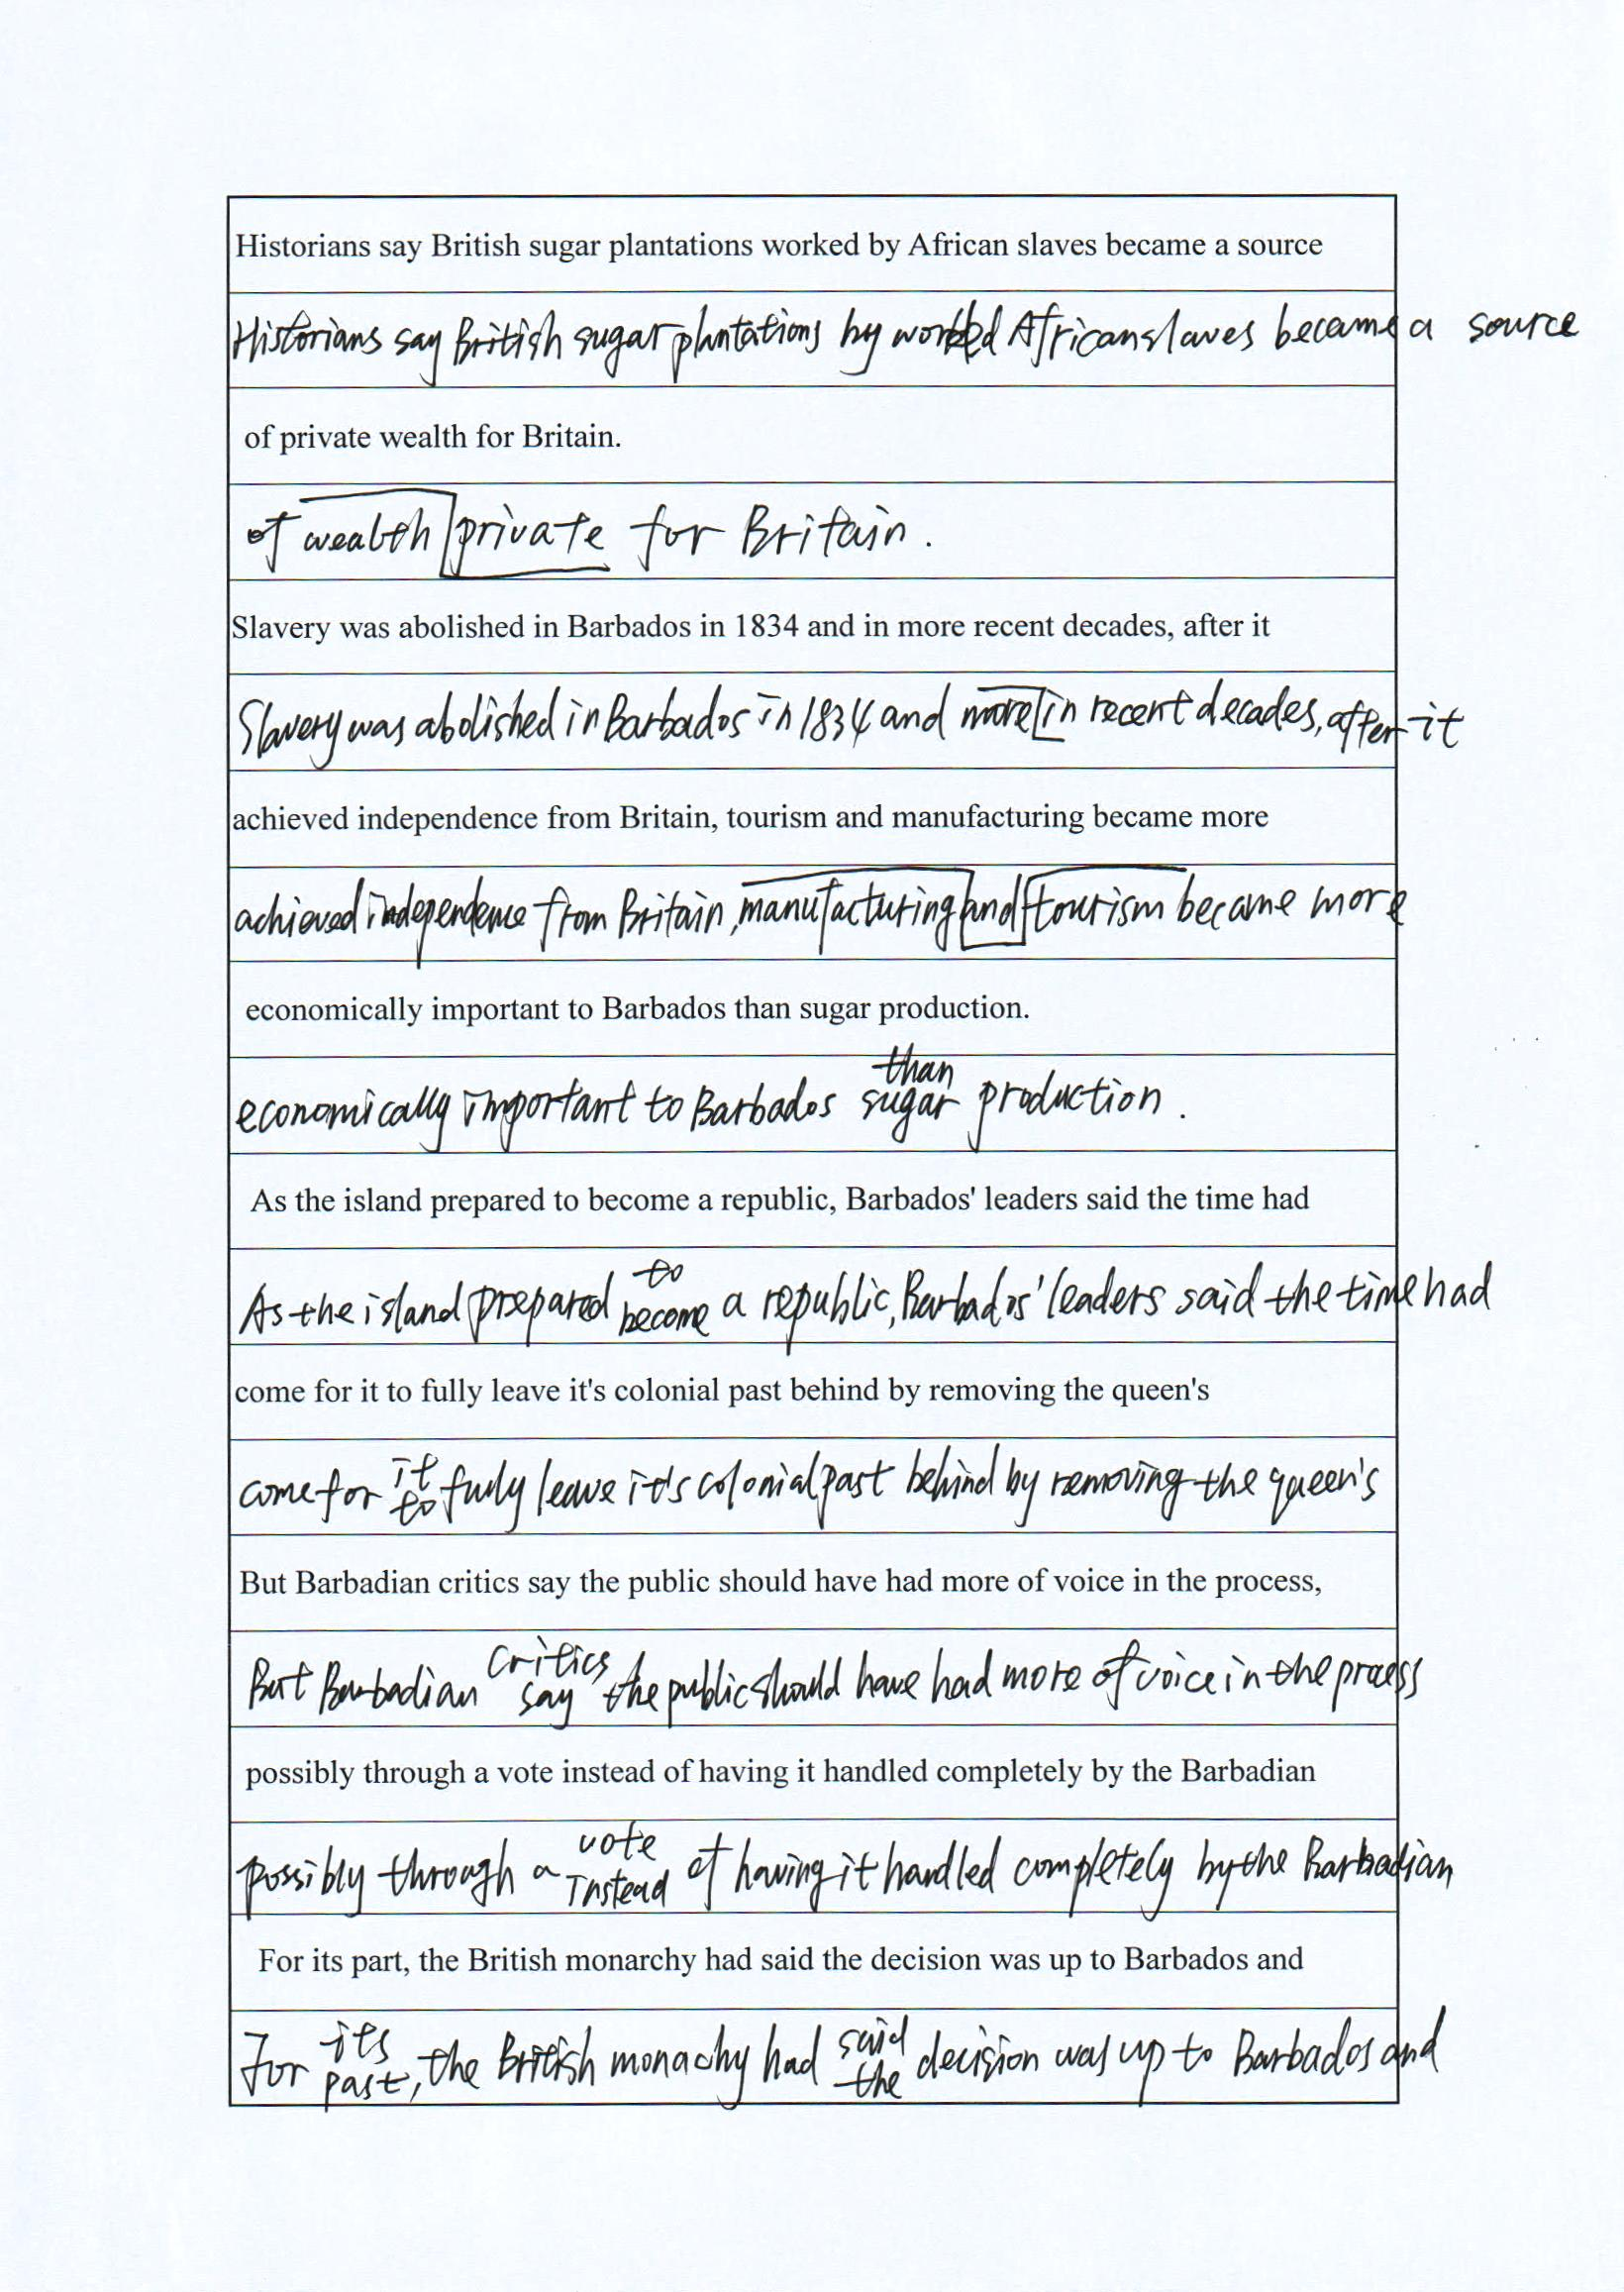 Historians say British sugar plantations worked by African slaves became a source
Historians say British sugar plantations by worked African slaves became a source
of private wealth for Britain.
of wealth private for Britain.
Slavery was abolished in Barbados in 1834 and in more recent decades, after it
Slavery was abolished in Barbados in 1834 and more in recent decades, after it
achieved independence from Britain, tourism and manufacturing became more
achieved independence from Britain, manufacturing and tourism became more
economically important to Barbados than sugar production.
economically important to Barbados than sugar production.
As the island prepared to become a republic, Barbados' leaders said the time had
As the island prepared to become a republic, Barbados' leaders said the time had
come for it to fully leave it's colonial past behind by removing the queen's
come for it to fully leave it's colonial past behind by removing the queen's
But Barbadian critics say the public should have had more of voice in the process,
But Barbadian critics say the public should have had more of voice in the process
possibly through a vote instead of having it handled completely by the Barbadian
possibly through a vote instead of having it handled completely by the Barbadian
For its part, the British monarchy had said the decision was up to Barbados and
For its past, the British monachy had said the decision was up to Barbados and